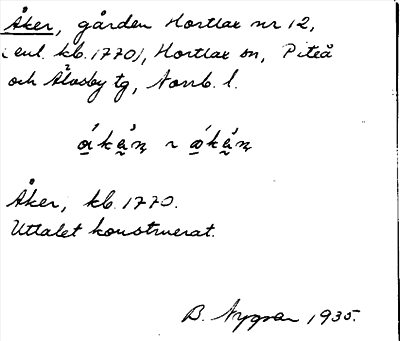 Åker, gården Hortlax nr 12,
(enl. kb. 1770), Hortlax sn, Piteå
och Älvsby tg, Norrb. l.
Åker, kb. 1770.
Uttalet konstruerat.
B. Nygren 1935.